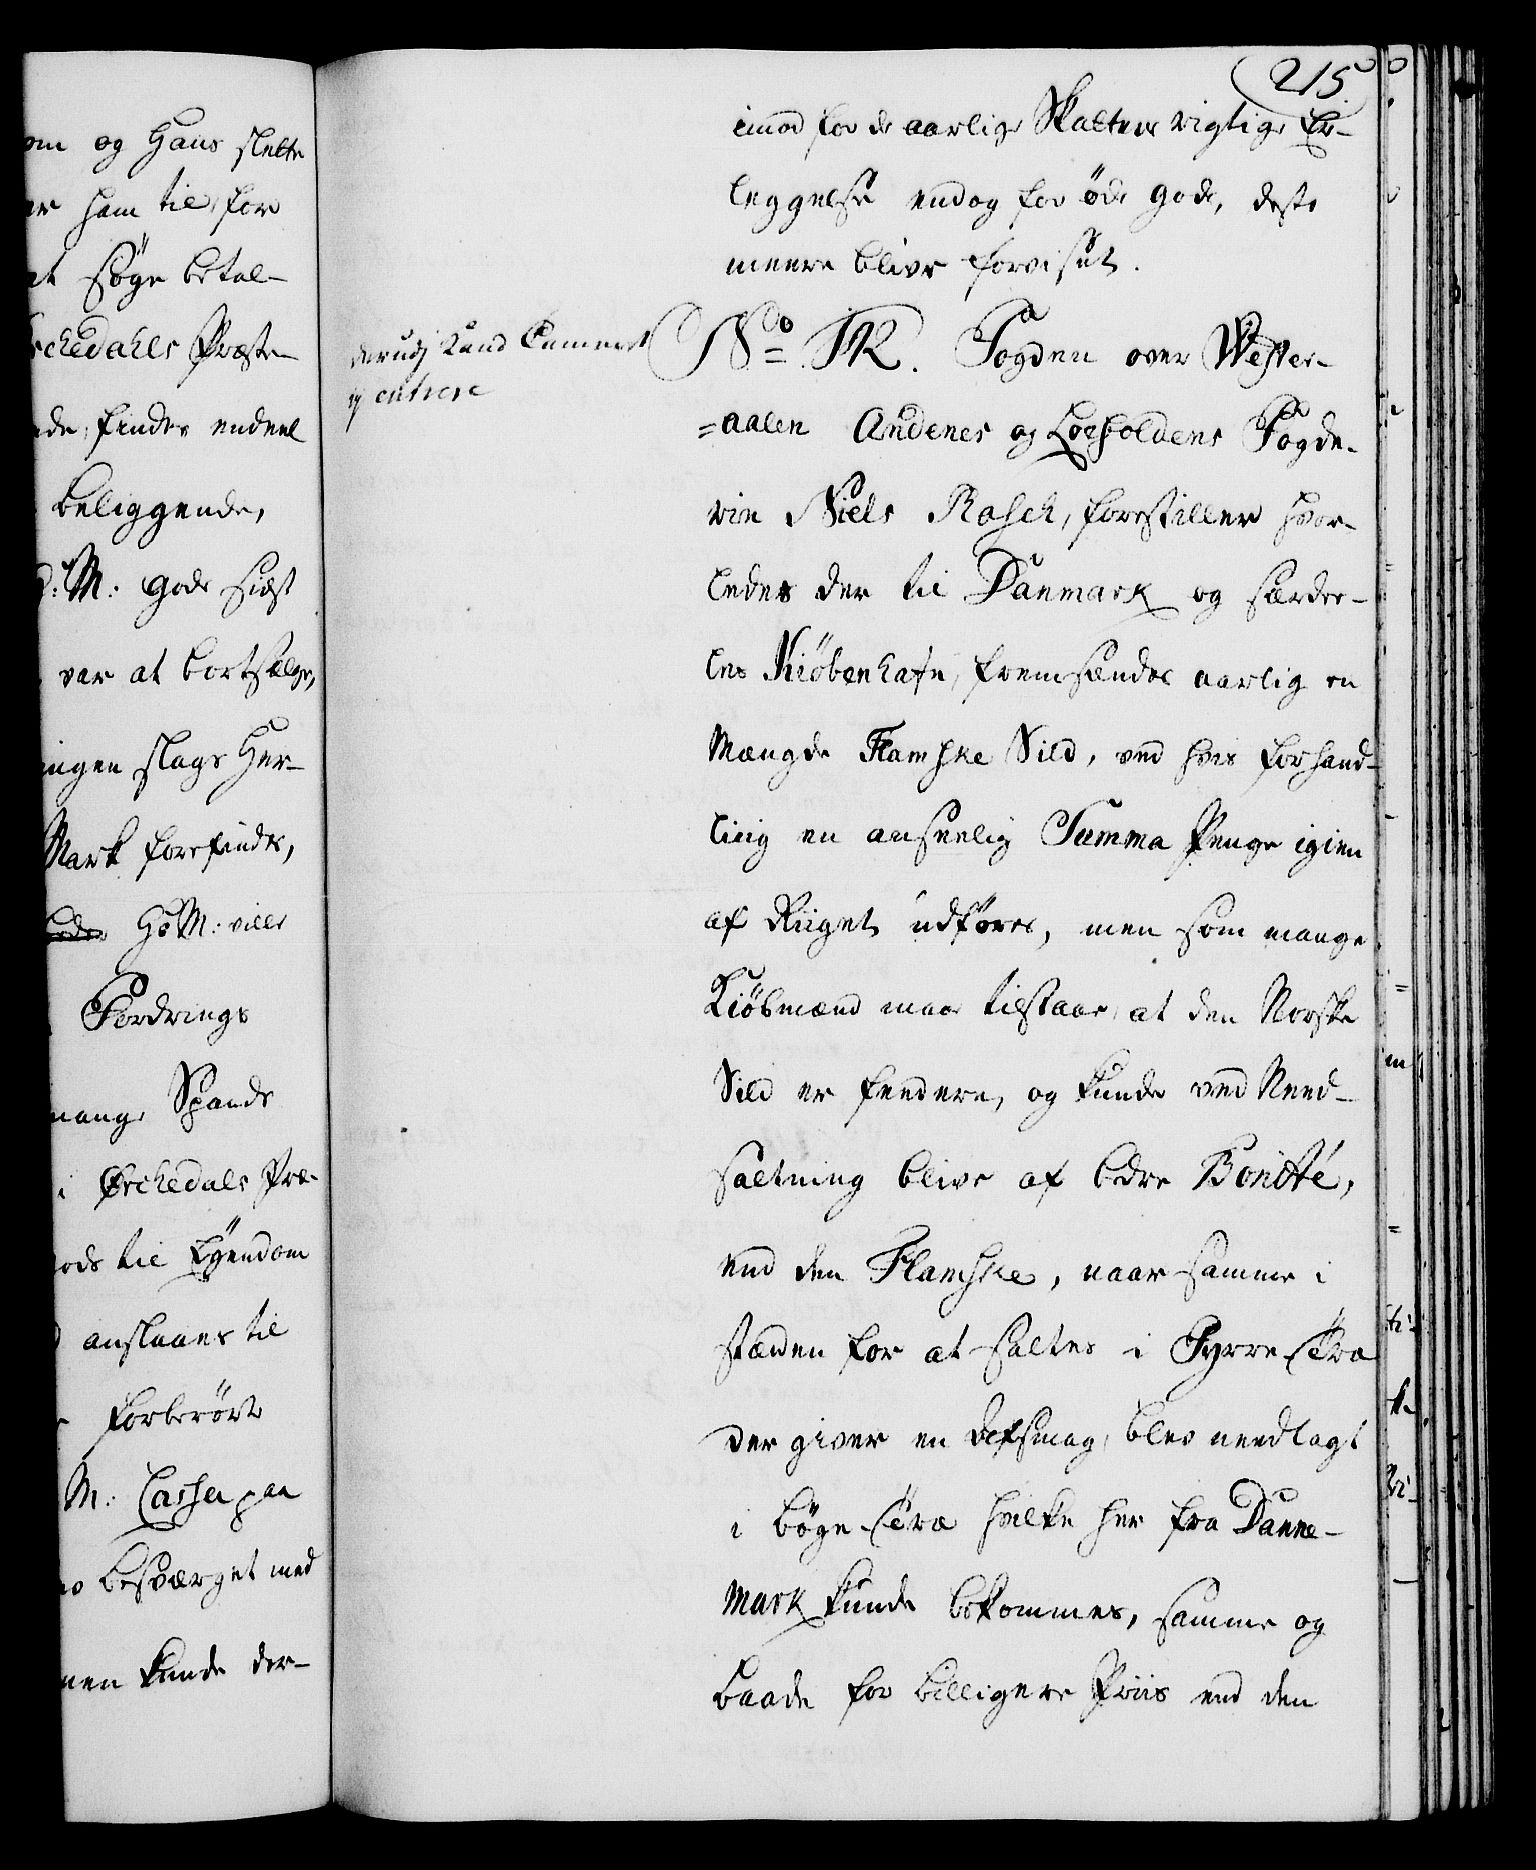 om og Hans slette
er ham til, for
at søge betal-
rchedahls Præste-
nde, findes endeel
beliggende,
D: M: Gods sidst
var at bortsælge,
ingen slags Her-
Mark forefindes,
Ho M: ville
Fordrings
mange Spands
i Ørchedals Præ-
ods til Eÿendom
anslaaes til
forberørte
M: Cassa paa
besværget med
men kunde der-
215
imod for de aarlige Skatters rigtige Er-
leggelse endog for øde Gods, deste
meere blive forviset.
derudj Kand Cammeret
ej entrere
No TR. Fogden over Wester-
=aalen Andenes og Lofodens Fogde-
rie Niels Rasch, forestiller hvor-
ledes der til Danmark og særde-
les Kiöbenhafn, fremsendes aarlig en
Mængde Flamske Sild, ved hvis forhand-
ling en anseelig Summa Penge igien
af Riiget udføres, men som mange
Kiöbmænd maae tilstaae, at den Norske
Sild er feedere, og kunde ved Need-
saltning blive af bedre Bonité,
end den Flamske, naar samme i
stæden for at saltes i Fyrre-Træ
der giver en Afsmag, blev needlagt
i Bøge-Træ hvilke her fra Danne-
mark kunde bekommes, samme og
baade for billigere Priis end den